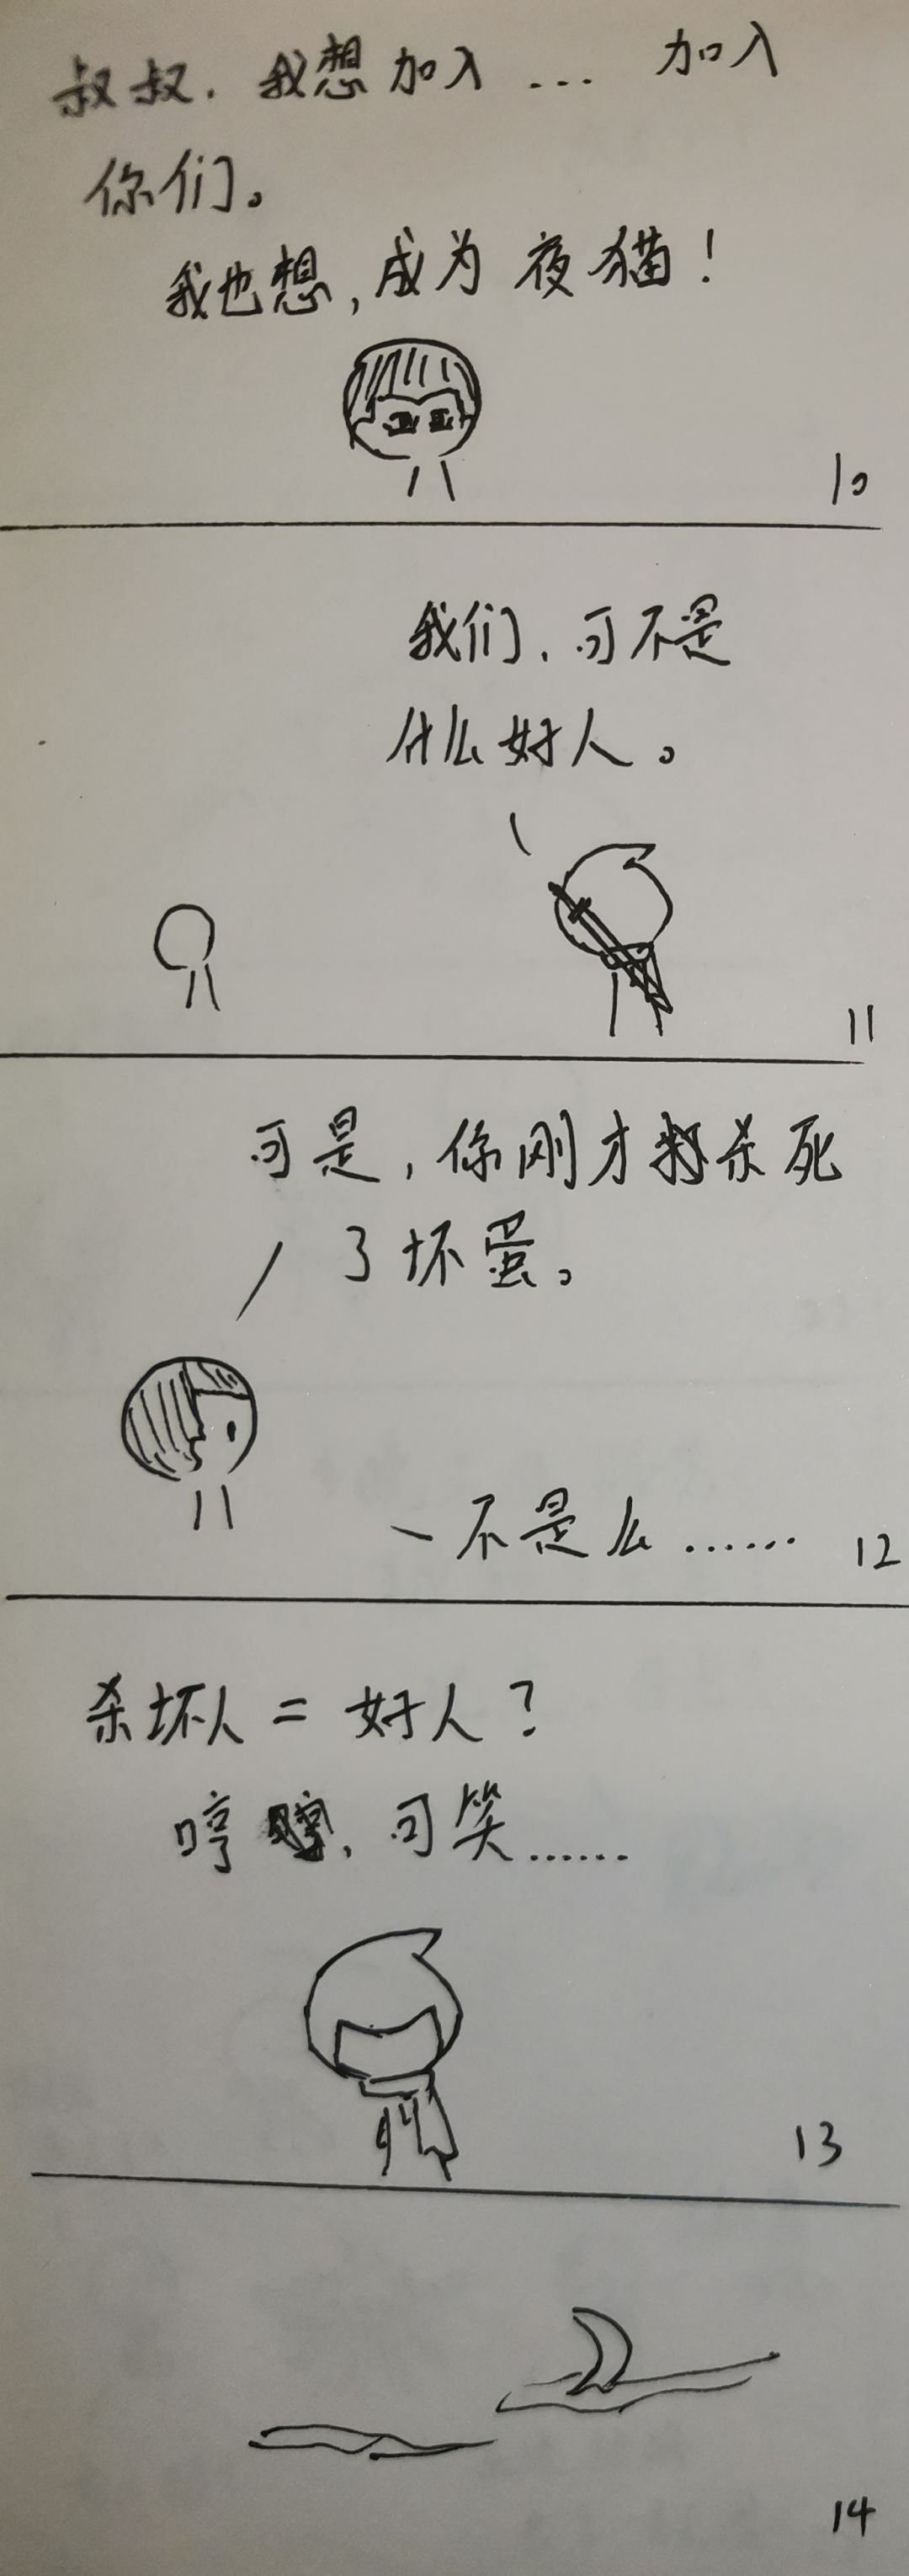 叔叔，我想加入… 加入
你们。
我也想，成为夜猫！
10
我们，可不是
什么好人。
11
可是，你刚才杀死
了坏蛋。
不是么……
12
杀坏人=好人？
哼，可笑……
13
14